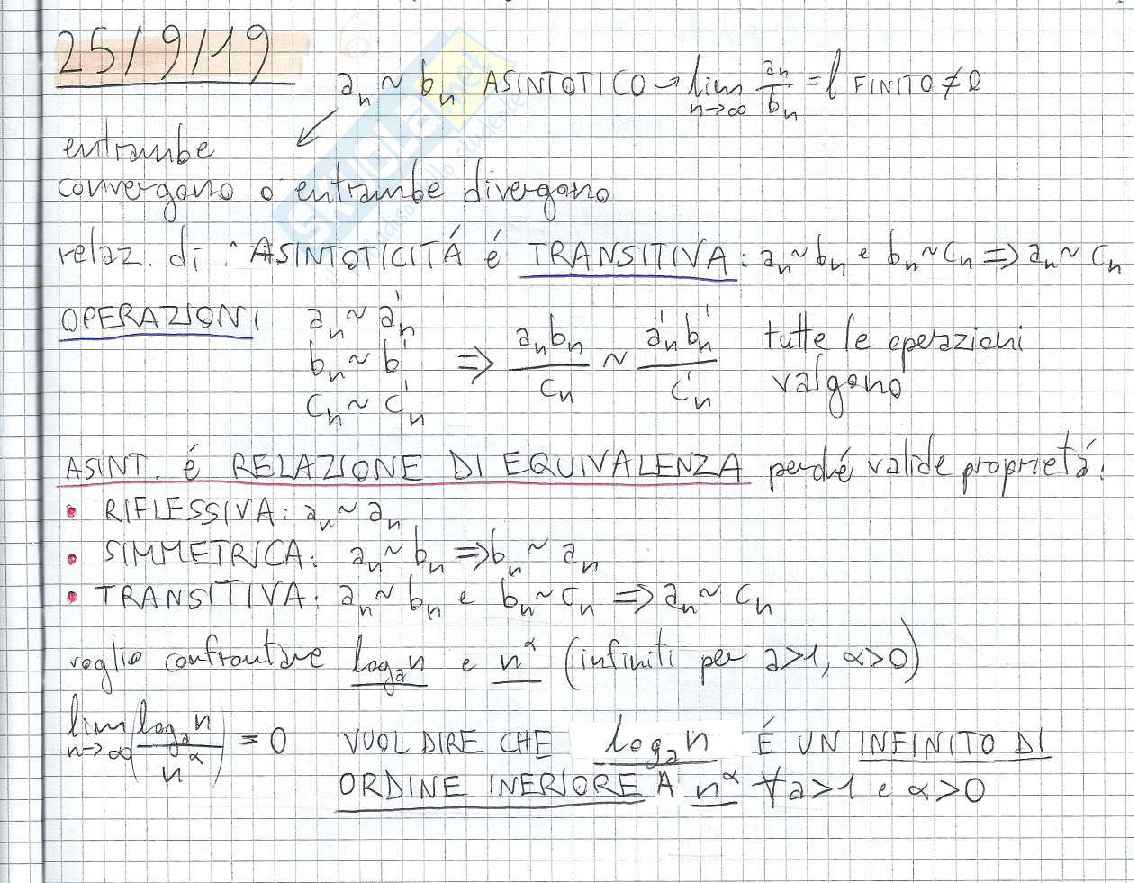 25/9/19
aₙ ~ bₙ ASINTOTICO → lim n→∞ aₙ/bₙ = l FINITO ≠ 0
entrambe
convergono o entrambe divergono
relaz. di ASINTOTICITÁ é TRANSITIVA: aₙ~bₙ e bₙ~cₙ ⇒ aₙ~cₙ
OPERAZIONI aₙ ~ a'ₙ
bₙ ~ b' ⇒ aₙbₙ/cₙ ~ a'ₙb'ₙ/c'ₙ tutte le operazioni
cₙ ~ c'ₙ valgono
ASINT. é RELAZIONE DI EQUIVALENZA perché valide proprietá:
• RIFLESSIVA: aₙ~aₙ
• SIMMETRICA: aₙ~bₙ ⇒ bₙ~aₙ
• TRANSITIVA: aₙ~bₙ e bₙ~cₙ ⇒ aₙ~cₙ
voglio confrontare logₐn e n^α (infiniti per a>1, α>0)
lim n→∞ (logₐn/n^α) = 0 VUOL DIRE CHE logₐn É UN INFINITO DI
ORDINE INERIORE A n^α ∀a>1 e α>0